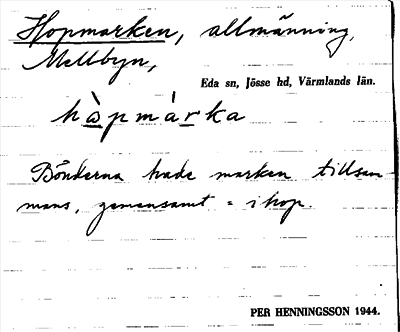 Hopmarken, allmänning,
Mellbyn,
Eda sn, Jösse hd, Värmlands län.
hòpmárka
Bönderna hade marken tillsam-
mans, gemensamt = ihop.
PER HENNINGSSON 1944.